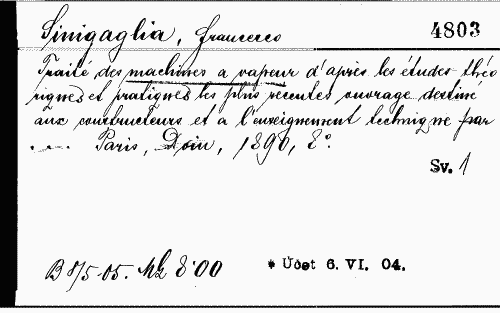 Sinigaglia, Francesco 4803
Traité des machines a vapeur d'après les études théo
riques et pratiques les plus récentes ouvrage destiné
aux constructeurs et a l'enseignement technique par
..... Paris, Doin, 1890, 8°.
Sv. 1
B 8/5-05. 8·00 * Účet 6. VI. 04.